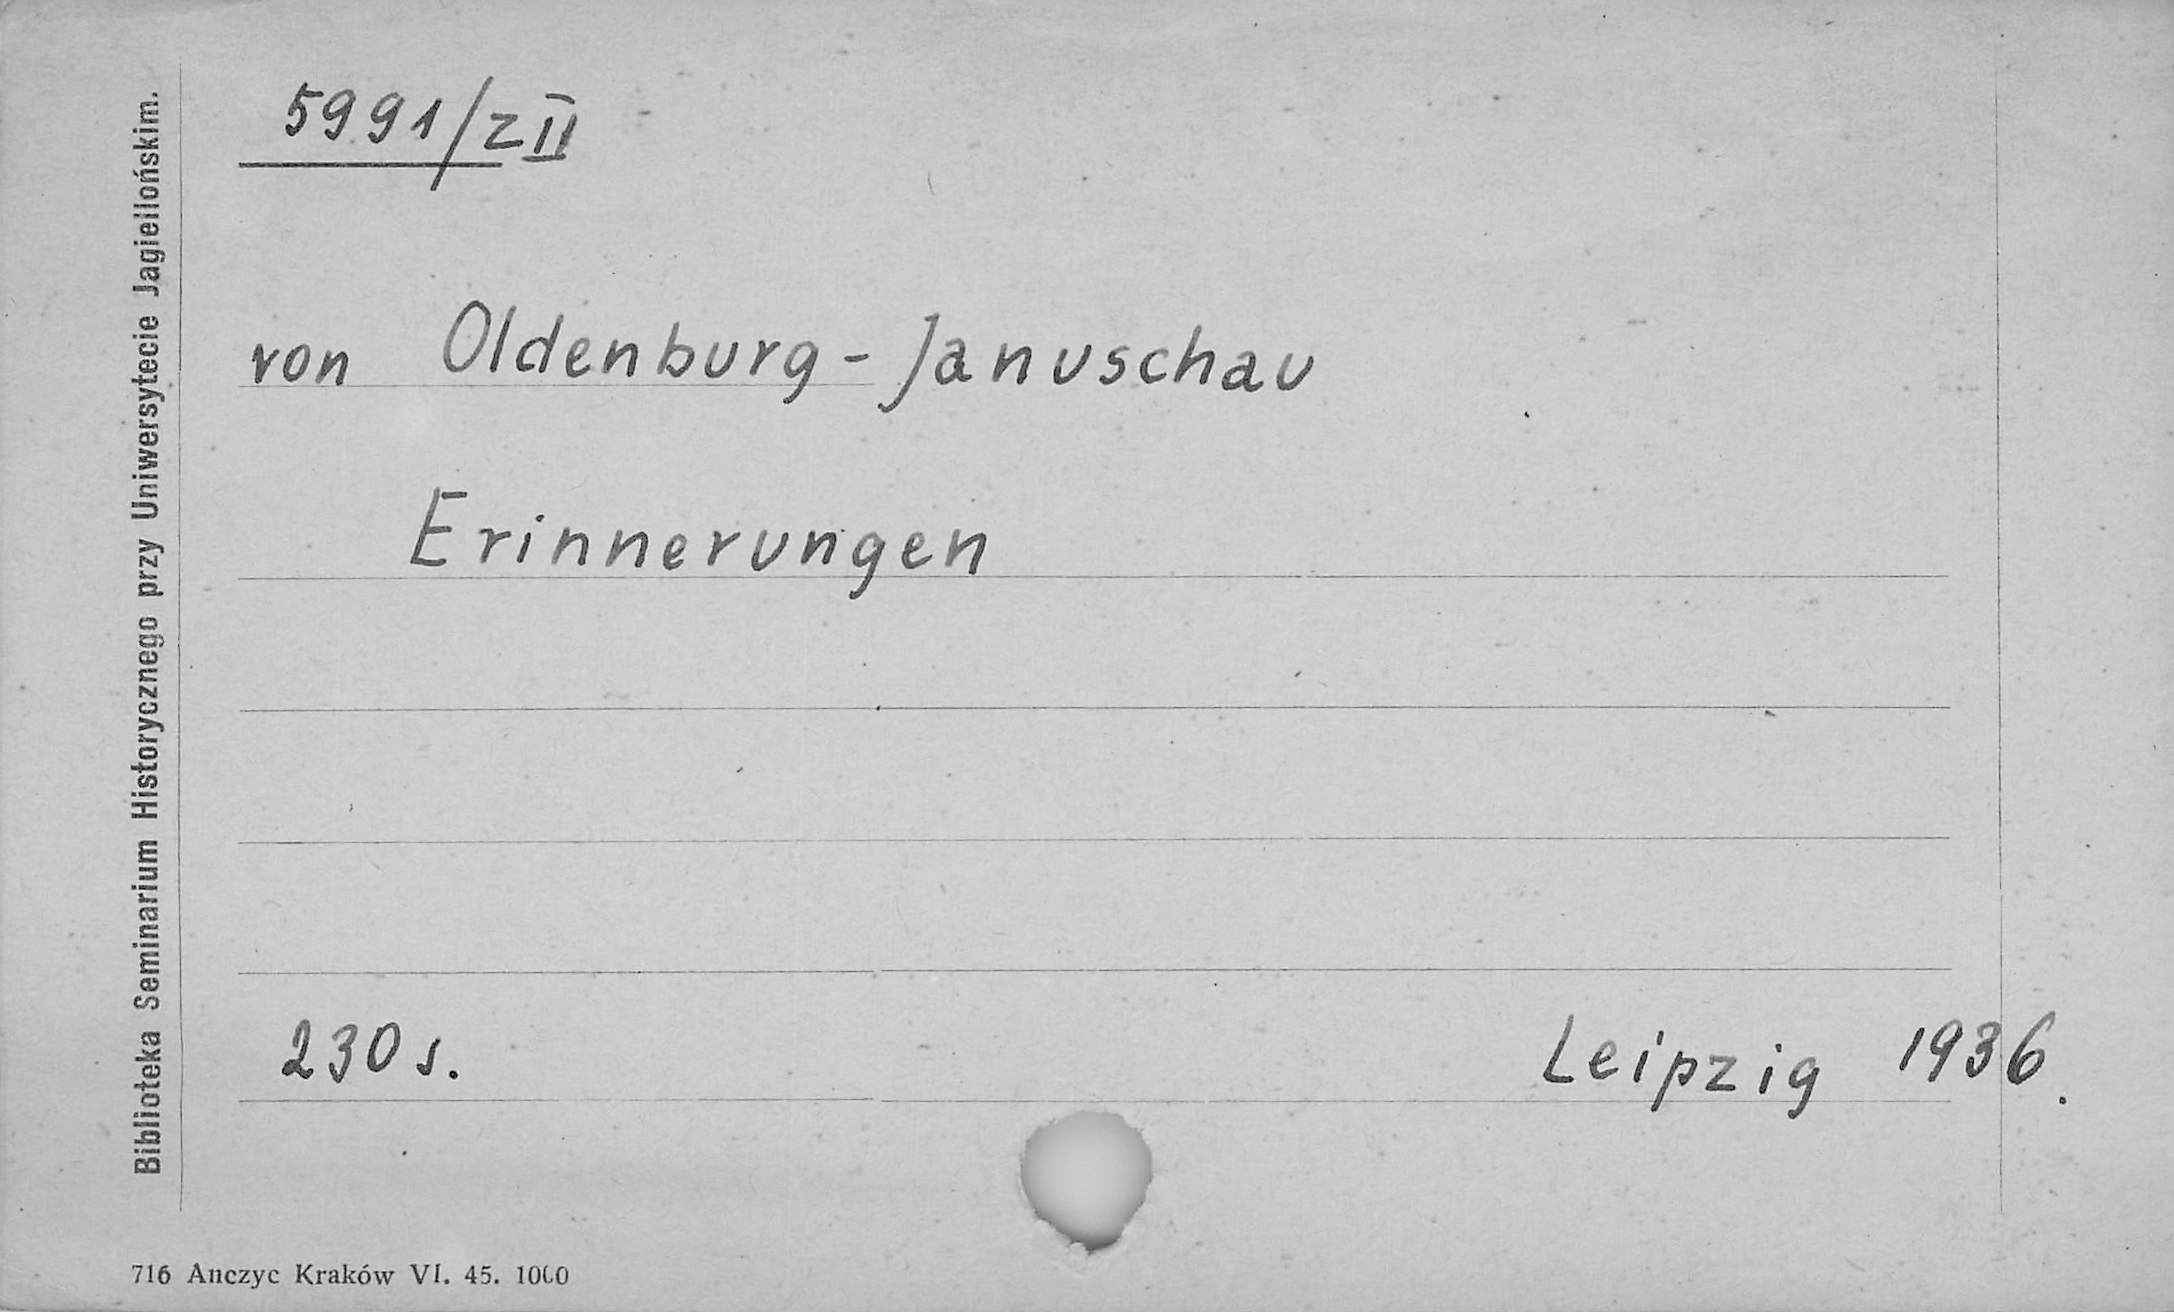 5991/Z II
von Oldenburg-Januschau
Erinnerungen
230 s.
Leipzig 1936.
Biblioteka Seminarium Historycznego przy Uniwersytecie Jagiellońskim.
716 Anczyc Kraków VI. 45. 1000